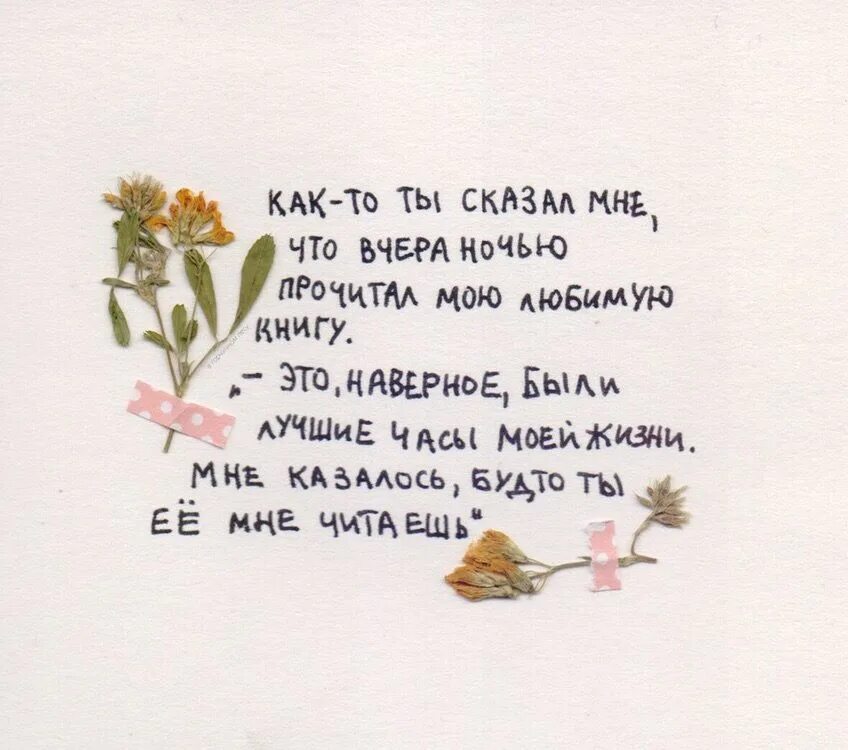 КАК-ТО ТЫ СКАЗАЛ МНЕ,
ЧТО ВЧЕРА НОЧЬЮ
ПРОЧИТАЛ МОЮ ЛЮБИМУЮ
КНИГУ.
„– ЭТО, НАВЕРНОЕ, БЫЛИ
ЛУЧШИЕ ЧАСЫ МОЕЙ ЖИЗНИ.
МНЕ КАЗАЛОСЬ, БУДТО ТЫ
ЕЁ МНЕ ЧИТАЕШЬ“